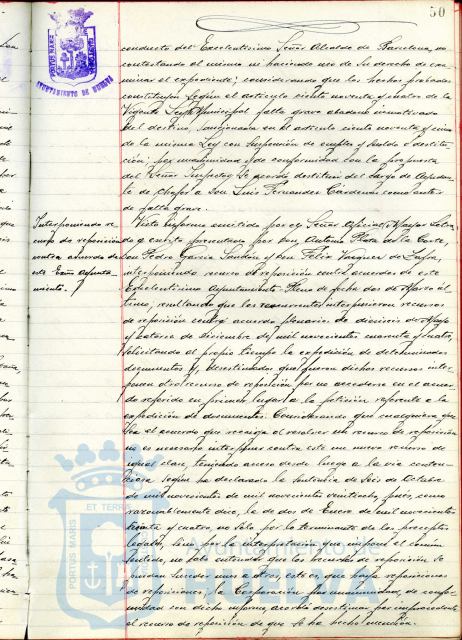 50
PORTUS MARIS
AYUNTAMIENTO DE HUELVA
conducto del Excelentísimo Señor Alcalde de Barcelona, no
contestando al mismo ni haciendo uso de su derecho de exa-
minar el expediente; considerando que los hechos probados
constituyen según el artículo ciento noventa y cuatro de la
Vigente Ley Municipal falta grave abandono inmotivado
del destino, sancionada en el artículo ciento noventa y cinco
de la misma Ley con suspensión de empleo y sueldo o destitu-
ción; por unanimidad y de conformidad con la propuesta
del Señor Inspector se acordó destituir del cargo de Ayudan-
te de Chofer a Don Luis Fernández Cárdenas como autor
de falta grave.
Interponiendo re-
curso de reposición
contra acuerdo de
este Excmo Ayunta-
miento.
Visto informe emitido por el Señor Oficial Mayor Letra-
do a escrito presentado por Don Antonio Plata de la Corte,
Don Pedro García y Don Félix Vázquez de Zafra,
interponiendo recurso de reposición contra acuerdo de este
Excelentísimo Ayuntamiento Pleno de fecha dos de Marzo úl-
timo, resultando que los recurrentes interpusieron recursos
de reposición contra acuerdos plenarios de dieciseis de Mayo
y catorce de Diciembre de mil novecientos cuarenta y cuatro,
solicitando al propio tiempo la expedición de determinados
documentos y, desestimados que fueron dichos recursos inter-
ponen otro recurso de reposición por no accederse en el acuer-
do referido en primer lugar a la petición referente a la
expedición de documentos. Considerando que cualquiera que
sea el acuerdo que recaiga al resolver un recurso de reposición
no es necesario interponer contra este un nuevo recurso de
igual clase, teniendo acceso desde luego a la vía conten-
ciosa según ha declarado la sentencia de Seis de Octubre
de mil novecientos de mil novecientos veintiocho, pués, como
razonablemente dice, la de dos de Enero de mil novecientos
treinta y cuatro, no sólo por lo terminante de los preceptos
legales, sino por la interpretación que impone el común
sentido, no cabe entender que los recursos de reposición se
puedan suceder unos a otros, esto es, que haya reposiciones
de reposiciones, la Corporación por unanimidad, de confor-
midad con dicho informe, acordó desestimar por improcedente
el recurso de reposición de que se ha hecho mención.
PORTUS MARIS
ET TERRA
Ayuntamiento de